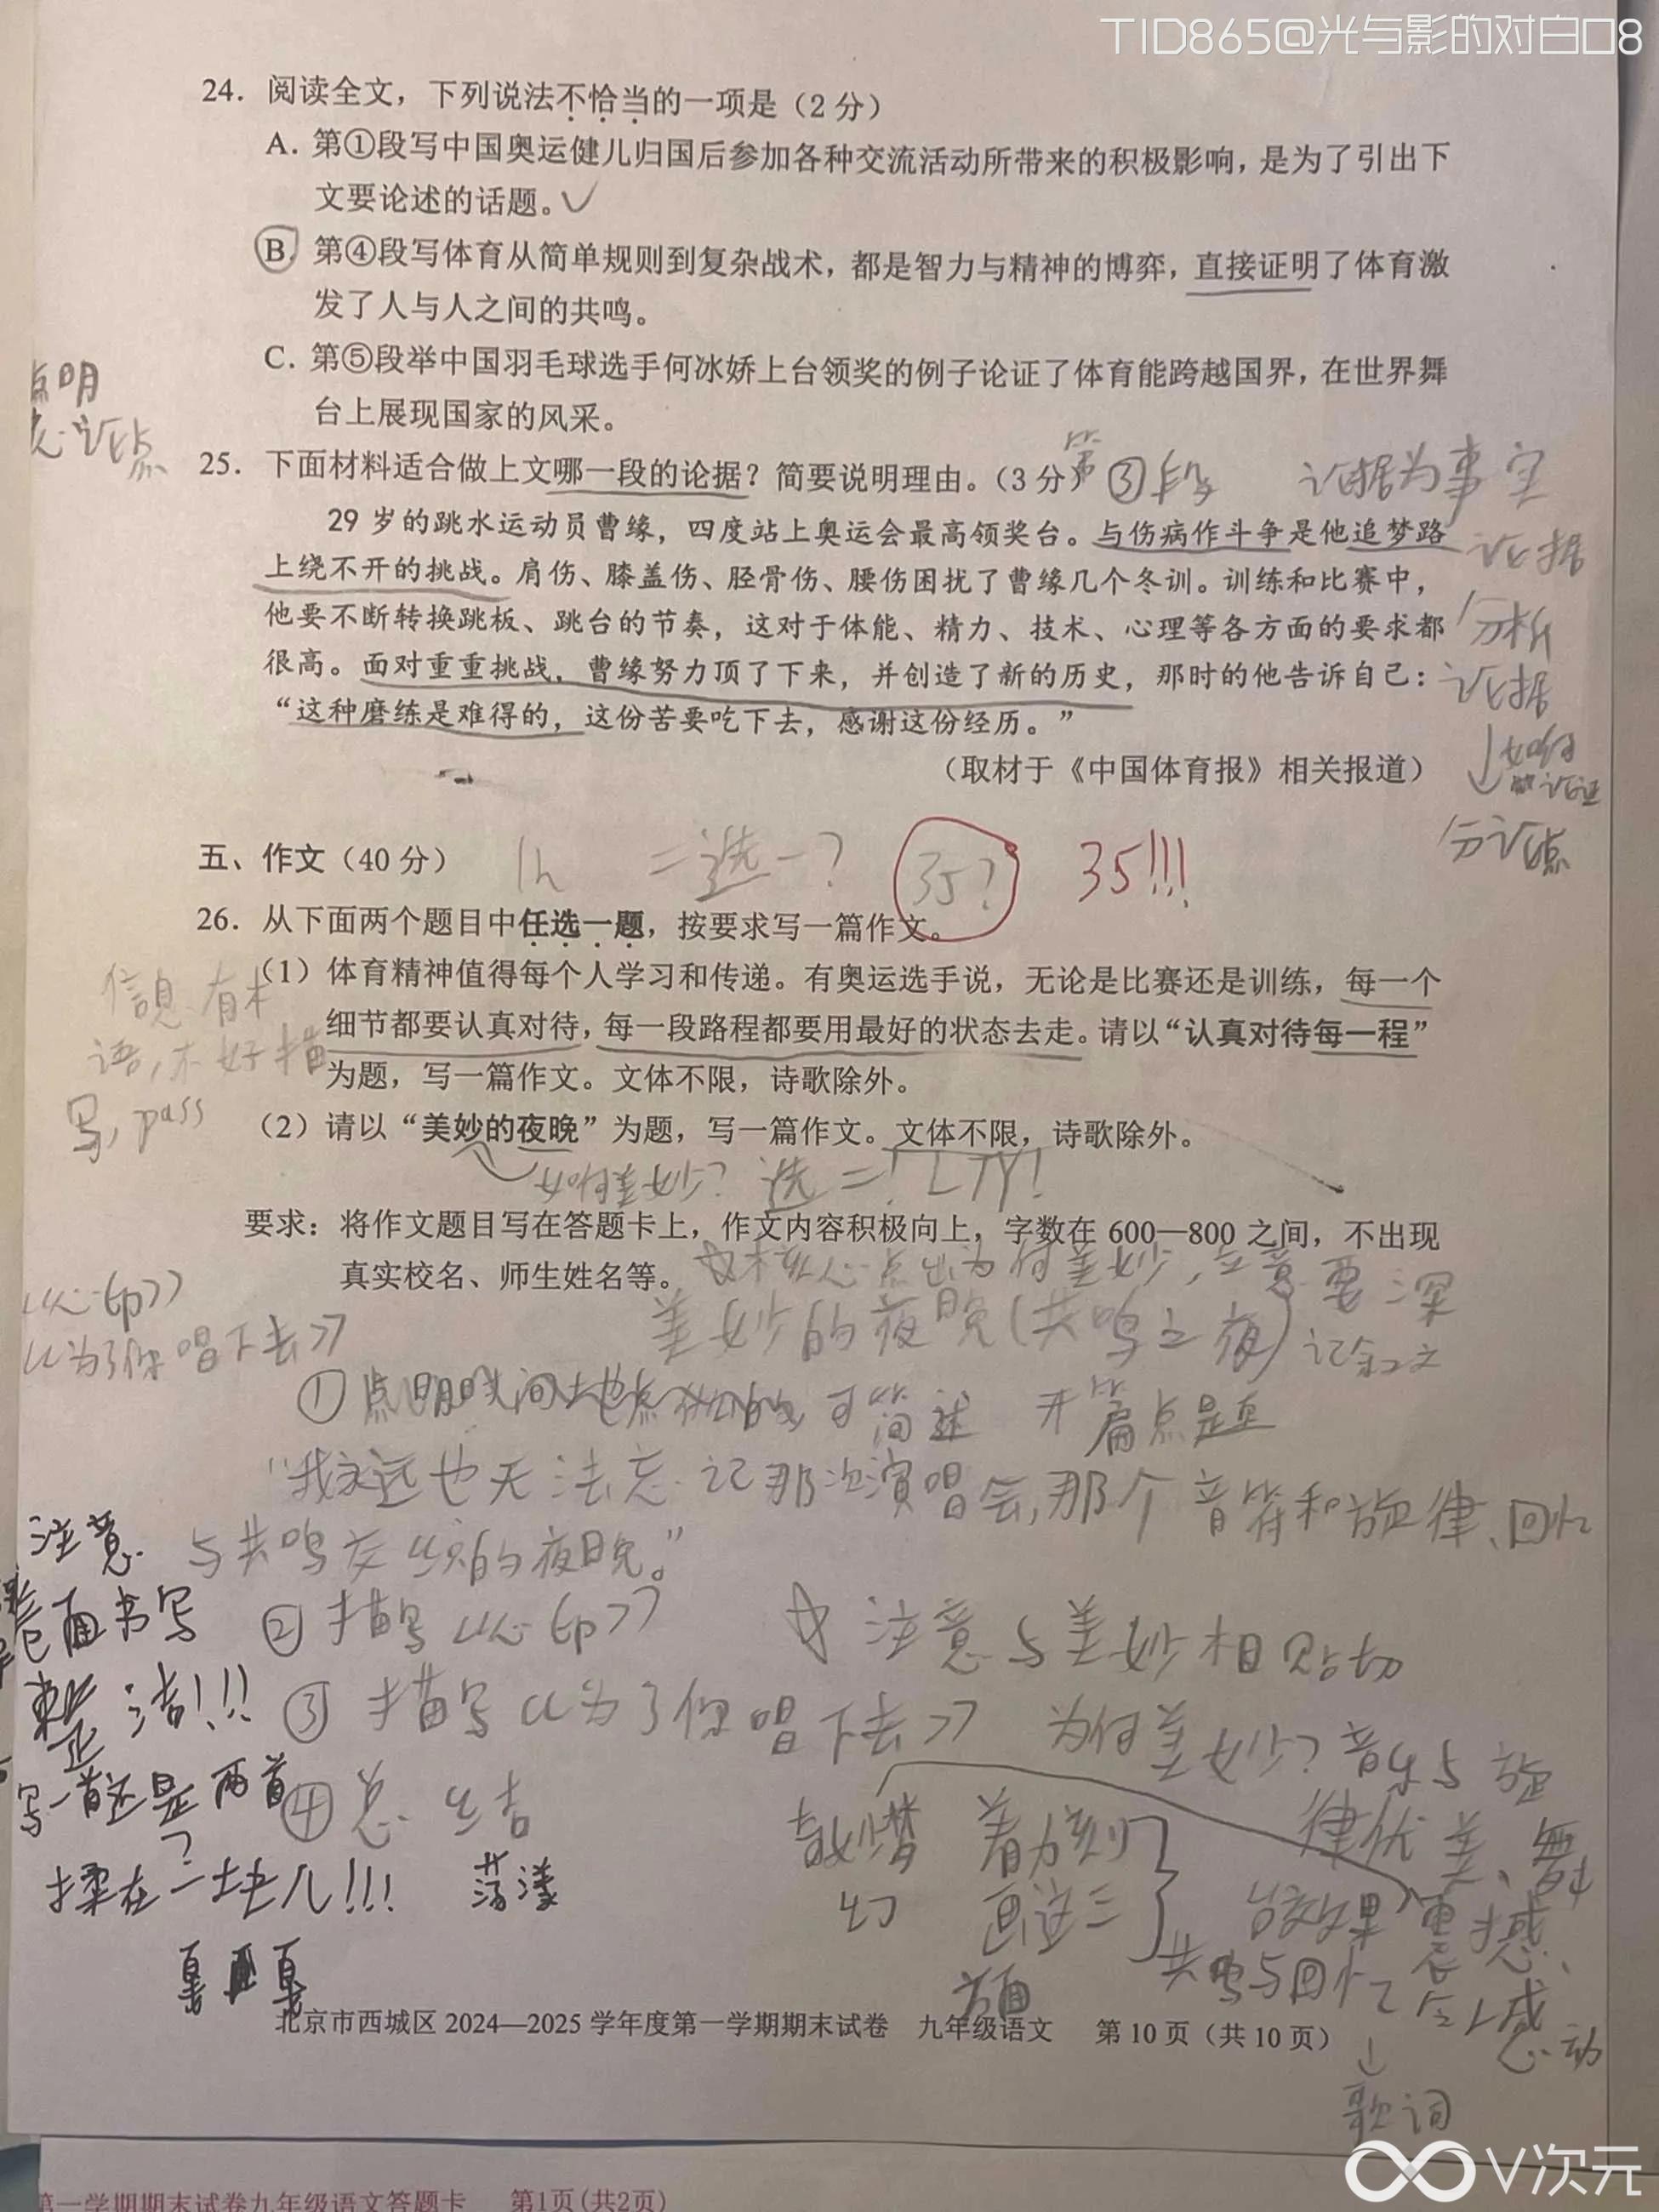 TID865@光与影的对白08
24. 阅读全文，下列说法不恰当的一项是（2 分）
A. 第①段写中国奥运健儿归国后参加各种交流活动所带来的积极影响，是为了引出下
文要论述的话题。✓
B. 第④段写体育从简单规则到复杂战术，都是智力与精神的博弈，直接证明了体育激
发了人与人之间的共鸣。
C. 第⑤段举中国羽毛球选手何冰娇上台领奖的例子论证了体育能跨越国界，在世界舞
台上展现国家的风采。
点明
论点
25. 下面材料适合做上文哪一段的论据？简要说明理由。（3 分）
第③段 论据为事实
29 岁的跳水运动员曹缘，四度站上奥运会最高领奖台。与伤病作斗争是他追梦路
上绕不开的挑战。肩伤、膝盖伤、胫骨伤、腰伤困扰了曹缘几个冬训。训练和比赛中，
他要不断转换跳板、跳台的节奏，这对于体能、精力、技术、心理等各方面的要求都
很高。面对重重挑战，曹缘努力顶了下来，并创造了新的历史，那时的他告诉自己：
“这种磨练是难得的，这份苦要吃下去，感谢这份经历。”
（取材于《中国体育报》相关报道）
论据
分析
论据
↓如何
论证
分论点
五、作文（40 分）
1h 二选一？ 35？ 35!!!
26. 从下面两个题目中任选一题，按要求写一篇作文。
（1）体育精神值得每个人学习和传递。有奥运选手说，无论是比赛还是训练，每一个
细节都要认真对待，每一段路程都要用最好的状态去走。请以“认真对待每一程”
为题，写一篇作文。文体不限，诗歌除外。
信息有术
语，不好描
写，pass
（2）请以“美妙的夜晚”为题，写一篇作文。文体不限，诗歌除外。
如何美妙？选二！LTY！
要求：将作文题目写在答题卡上，作文内容积极向上，字数在 600—800 之间，不出现
真实校名、师生姓名等。
核心点出为何美妙，立意要深
美妙的夜晚（共鸣之夜）记叙文
《心印》
《为了你唱下去》
①点明时间地点 可简述 开篇点题
“我永远也无法忘记那次演唱会，那个音符和旋律、回忆
与共鸣交织的夜晚。”
注意
卷面书写
整洁!!!
写一首还是两首
？
揉在一块儿!!!
②描写《心印》
☆注意与美妙相贴切
③描写《为了你唱下去》
为何美妙？音乐与旋
律优美、舞
台效果震撼、
共鸣与回忆令人感动
↓
歌词
④总结
荡漾
着力刻
画这三
方面
梦
幻
北京市西城区 2024—2025 学年度第一学期期末试卷 九年级语文 第 10 页（共 10 页）
第一学期期末试卷九年级语文答题卡 第1页(共2页)
V次元